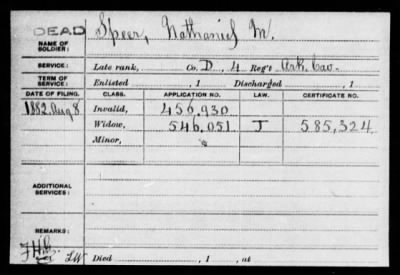 DEAD
NAME OF SOLDIER: Speer, Nathaniel M.
SERVICE: Late rank, Co. D, 4 Reg't Ark. Cav.
TERM OF SERVICE: Enlisted , 1 Discharged , 1
DATE OF FILING. CLASS. APPLICATION NO. LAW. CERTIFICATE NO.
1882, Aug 8 Invalid, 456,930
Widow, 546,051 J 585,324
Minor,
ADDITIONAL SERVICES:
REMARKS:
Died , 1 , at